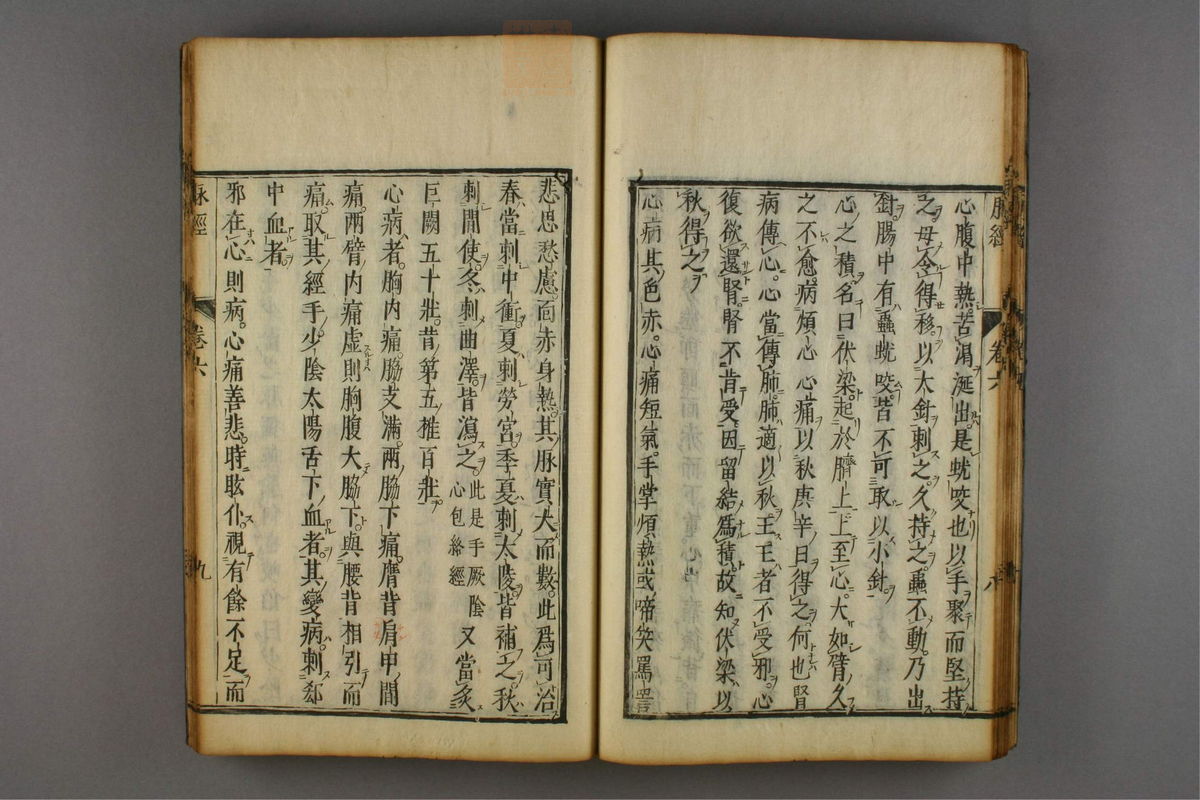 脉經 卷六 八
心腹中熱苦渴涎出是蚘咬也以手聚而堅持
之毋令得移以大針刺之久持之蟲不動乃出
針腸中有蟲蚘咬皆不可取以小針
心之積名曰伏梁起於臍上上至心大如臂久
之不愈病煩心心痛以秋庚辛日得之何也腎
病傳心心當傳肺肺適以秋王王者不受邪心
復欲還腎腎不肯受因留結爲積故知伏梁以
秋得之
心病其色赤心痛短氣手掌煩熱或啼笑罵詈
悲思愁慮面赤身熱其脉實大而數此爲可治
春當刺中衝夏刺勞宮季夏刺太陵皆補之秋
刺間使冬刺曲澤皆瀉之此是手厥陰心包絡經又當灸
巨闕五十壯背第五椎百壯
心病者胸內痛脇支滿兩脇下痛膺背肩甲間
痛兩臂內痛虛則胸腹大脇下與腰背相引而
痛取其經手少陰太陽舌下血者其變病刺郄
中血者
邪在心則病心痛善悲時眩仆視有餘不足而
脉經 卷六 九